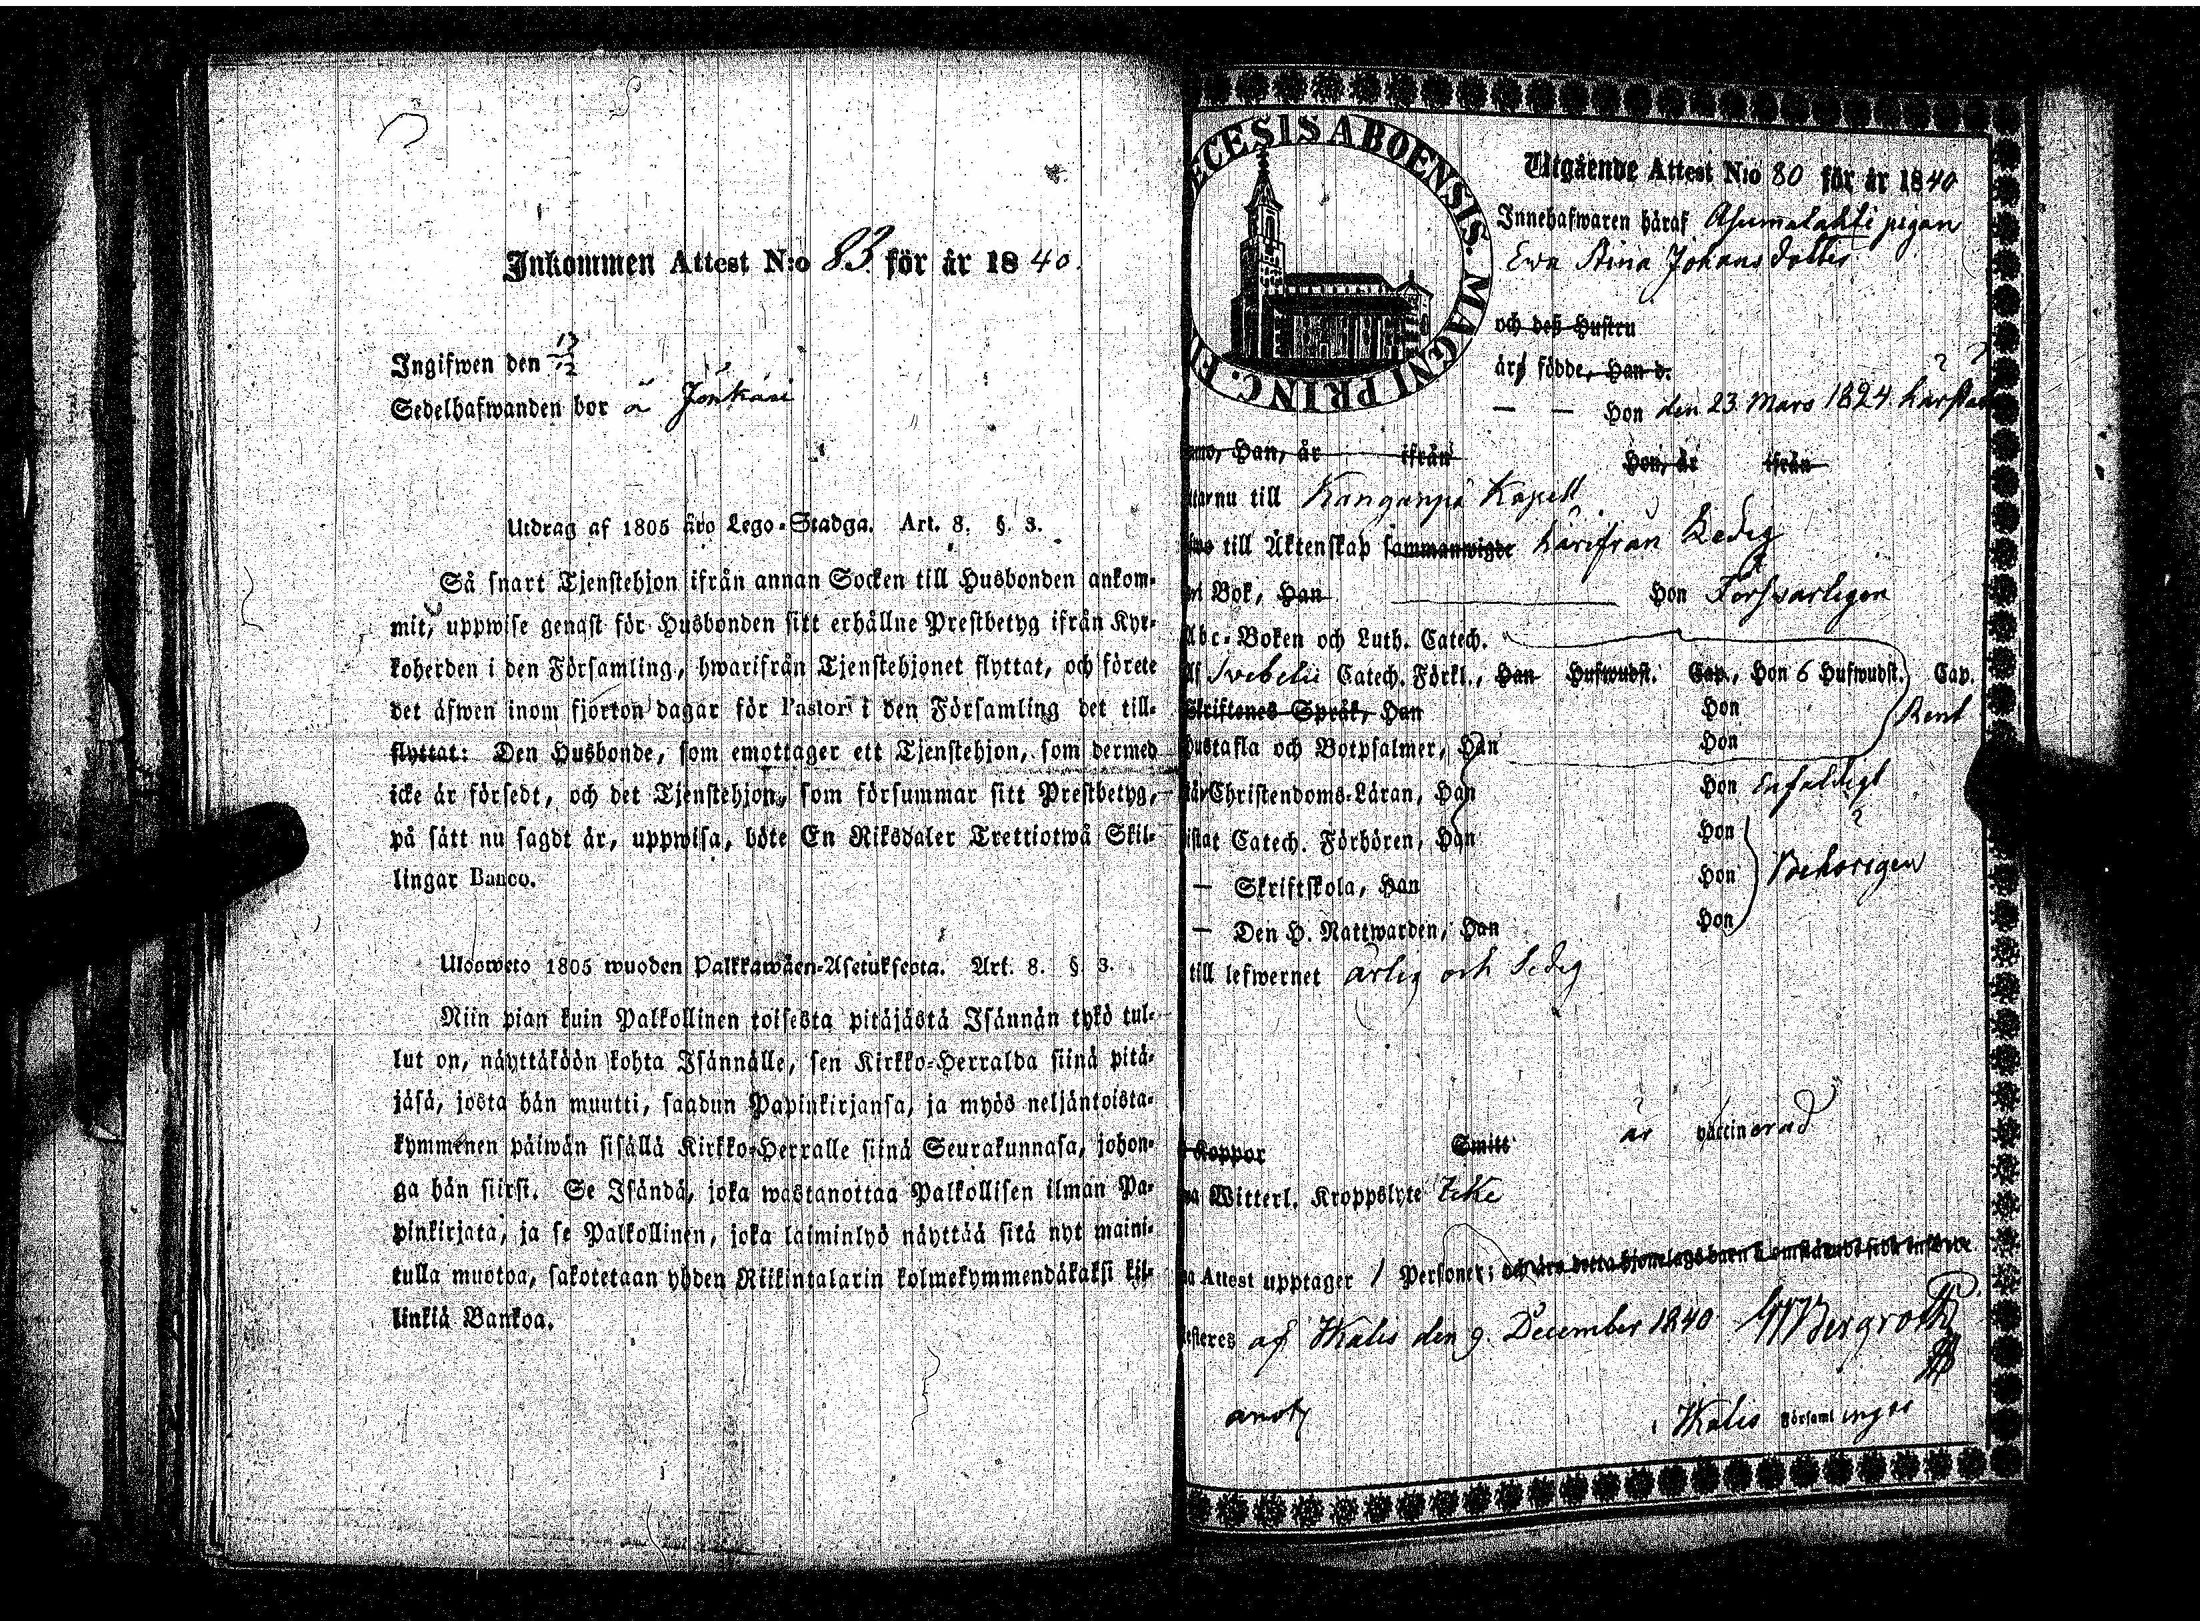 Inkommen Attest N:o 83 för år 1840.
Ingifwen den 17/12
Sedelhafwanden bor å Jönkäri
Utdrag af 1805 års Lego-Stadga. Art. 8. §. 3.
Så snart Tjenstehjon ifrån annan Socken till Husbonden ankom-
mit, uppwise genast för Husbonden sitt erhållne Prestbetyg ifrån Kyr-
koherden i den Församling, hwarifrån Tjenstehjonet flyttat, och förete
det äfwen inom fjorton dagar för Pastor i den Församling det till-
flyttat: Den Husbonde, som emottager ett Tjenstehjon, som dermed
icke är försedt, och det Tjenstehjon, som försummar sitt Prestbetyg,
på sätt nu sagdt är, uppwisa, böte En Riksdaler Trettiotwå Skil-
lingar Banco.
Ulosweto 1805 wuoden Palkkawäen-Asetuksesta. Art. 8. §. 3.
Niin pian kuin Palkollinen toisesta pitäjästä Isännän tykö tul-
lut on, näyttäköön kohta Isännälle, sen Kirkko-Herralda siinä pitä-
jäsä, josta hän muutti, saadun Papinkirjansa, ja myös neljäntoista-
kymmenen päiwän sisällä Kirkko-Herralle siinä Seurakunnasa, johon-
ga hän siirsi. Se Isändä, joka wastanottaa Palkollisen ilman Pa-
pinkirjata, ja se Palkollinen, joka laiminlyö näyttää sitä nyt maini-
tulla muotoa, sakotetaan yhden Riikintalarin kolmekymmendäkaksi kil-
linkiä Bankoa.
ECESIS ABOENSIS. MAGNI PRINC. FI
Utgående Attest N:o 80 för år 1840
Innehafwaren häraf Asumalahti pigan
Ewa Stina Johansdotter
och deß Hustru
äro födde, Han d.
— — Hon den 23 Mars 1824 härstä
Han, är ifrån Hon, är ifrån
nu till Kangarpä Kapell
till Äktenskap sammanwigde härifrån Ledig
Bok, Han Hon Forswarligen
Abc-Boken och Luth. Catech.
Svebelii Catech. Förkl., Han Hufwudst. Cap., Hon 6 Hufwudst. Cap.
Skriftenes Språk, Han Hon Rent
Hustafla och Botpsalmer, Han Hon
Christendoms-Läran, Han Hon Enfaldigt
Catech. Förhören, Han Hon
— Skriftskola, Han Hon Behörigen
— Den H. Nattwarden, Han Hon
till lefwernet ärlig och Sedig
Koppor Smitt är vaccinerad
Witterl. Kroppslyte Icke
Attest upptager 1 Personer; och äro detta hjonelags barn
af Ikalis den 9. December 1840 Bergroth
i Ikalis Församl inges